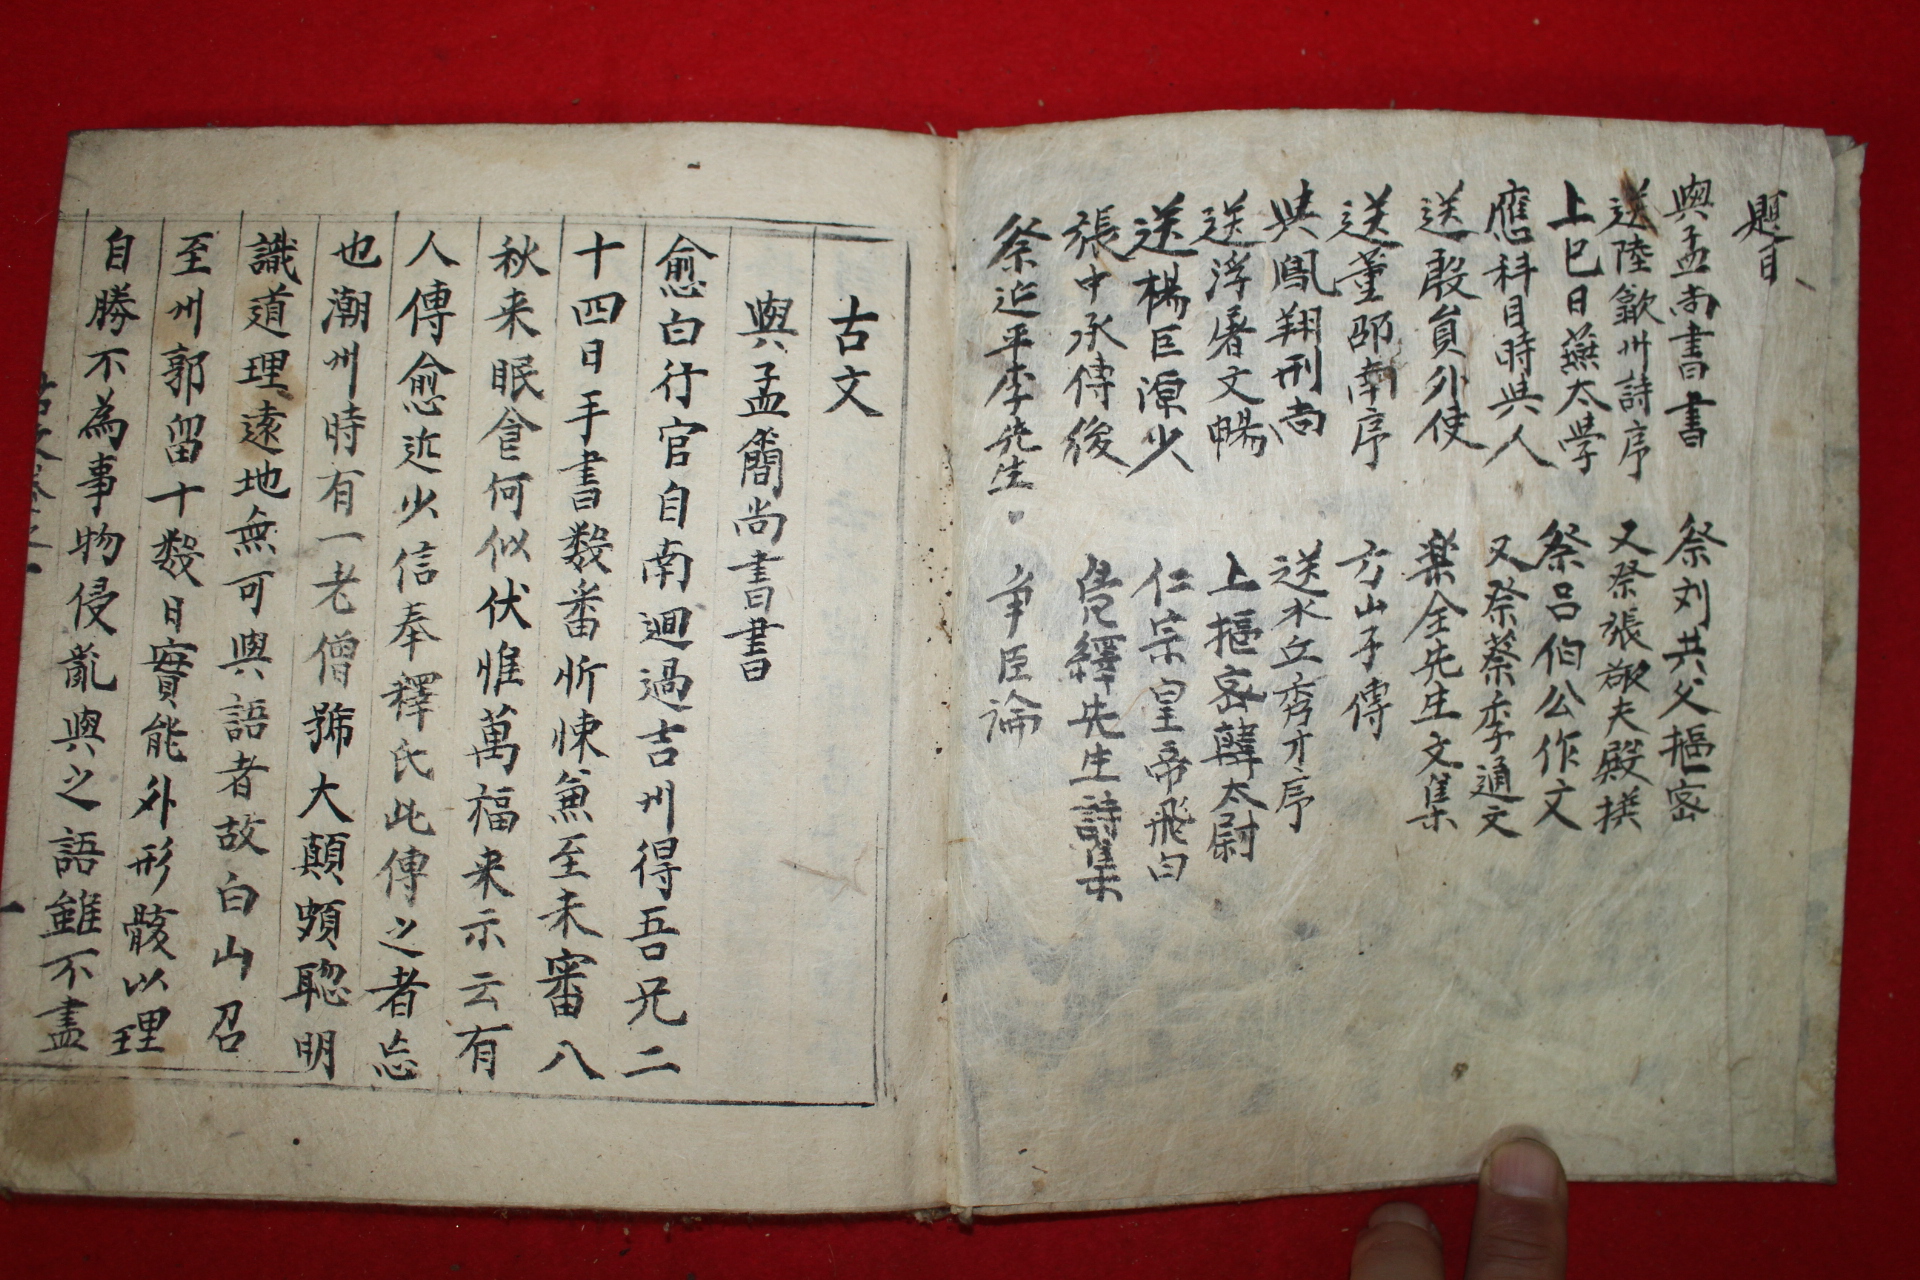 題目
與孟尚書書
祭刘共父樞密
送陸歙州詩序
又祭張敬夫殿撰
上巳日燕太學
祭呂伯公作文
應科目時與人
又祭蔡季通文
送殷員外使
楽全先生文集
送董邵南序
方山子傳
與鳳翔刑尚
送水丘秀才序
送浮屠文暢
上樞密韓太尉
送楊巨源少
仁宗皇帝飛白
張中丞傳後
鳧繹先生詩集
祭延平李先生
争臣論
古文
與孟簡尚書書
愈白行官自南迴過吉州得吾兄二
十四日手書数番忻悚兼至未審八
秋来眠食何似伏惟萬福来示云有
人傳愈近少信奉釋氏此傳之者忘
也潮州時有一老僧號大顛頗聡明
識道理遠地無可與語者故白山召
至州郭留十数日實能外形骸以理
自勝不為事物侵亂與之語雖不盡
古文卷之一
一